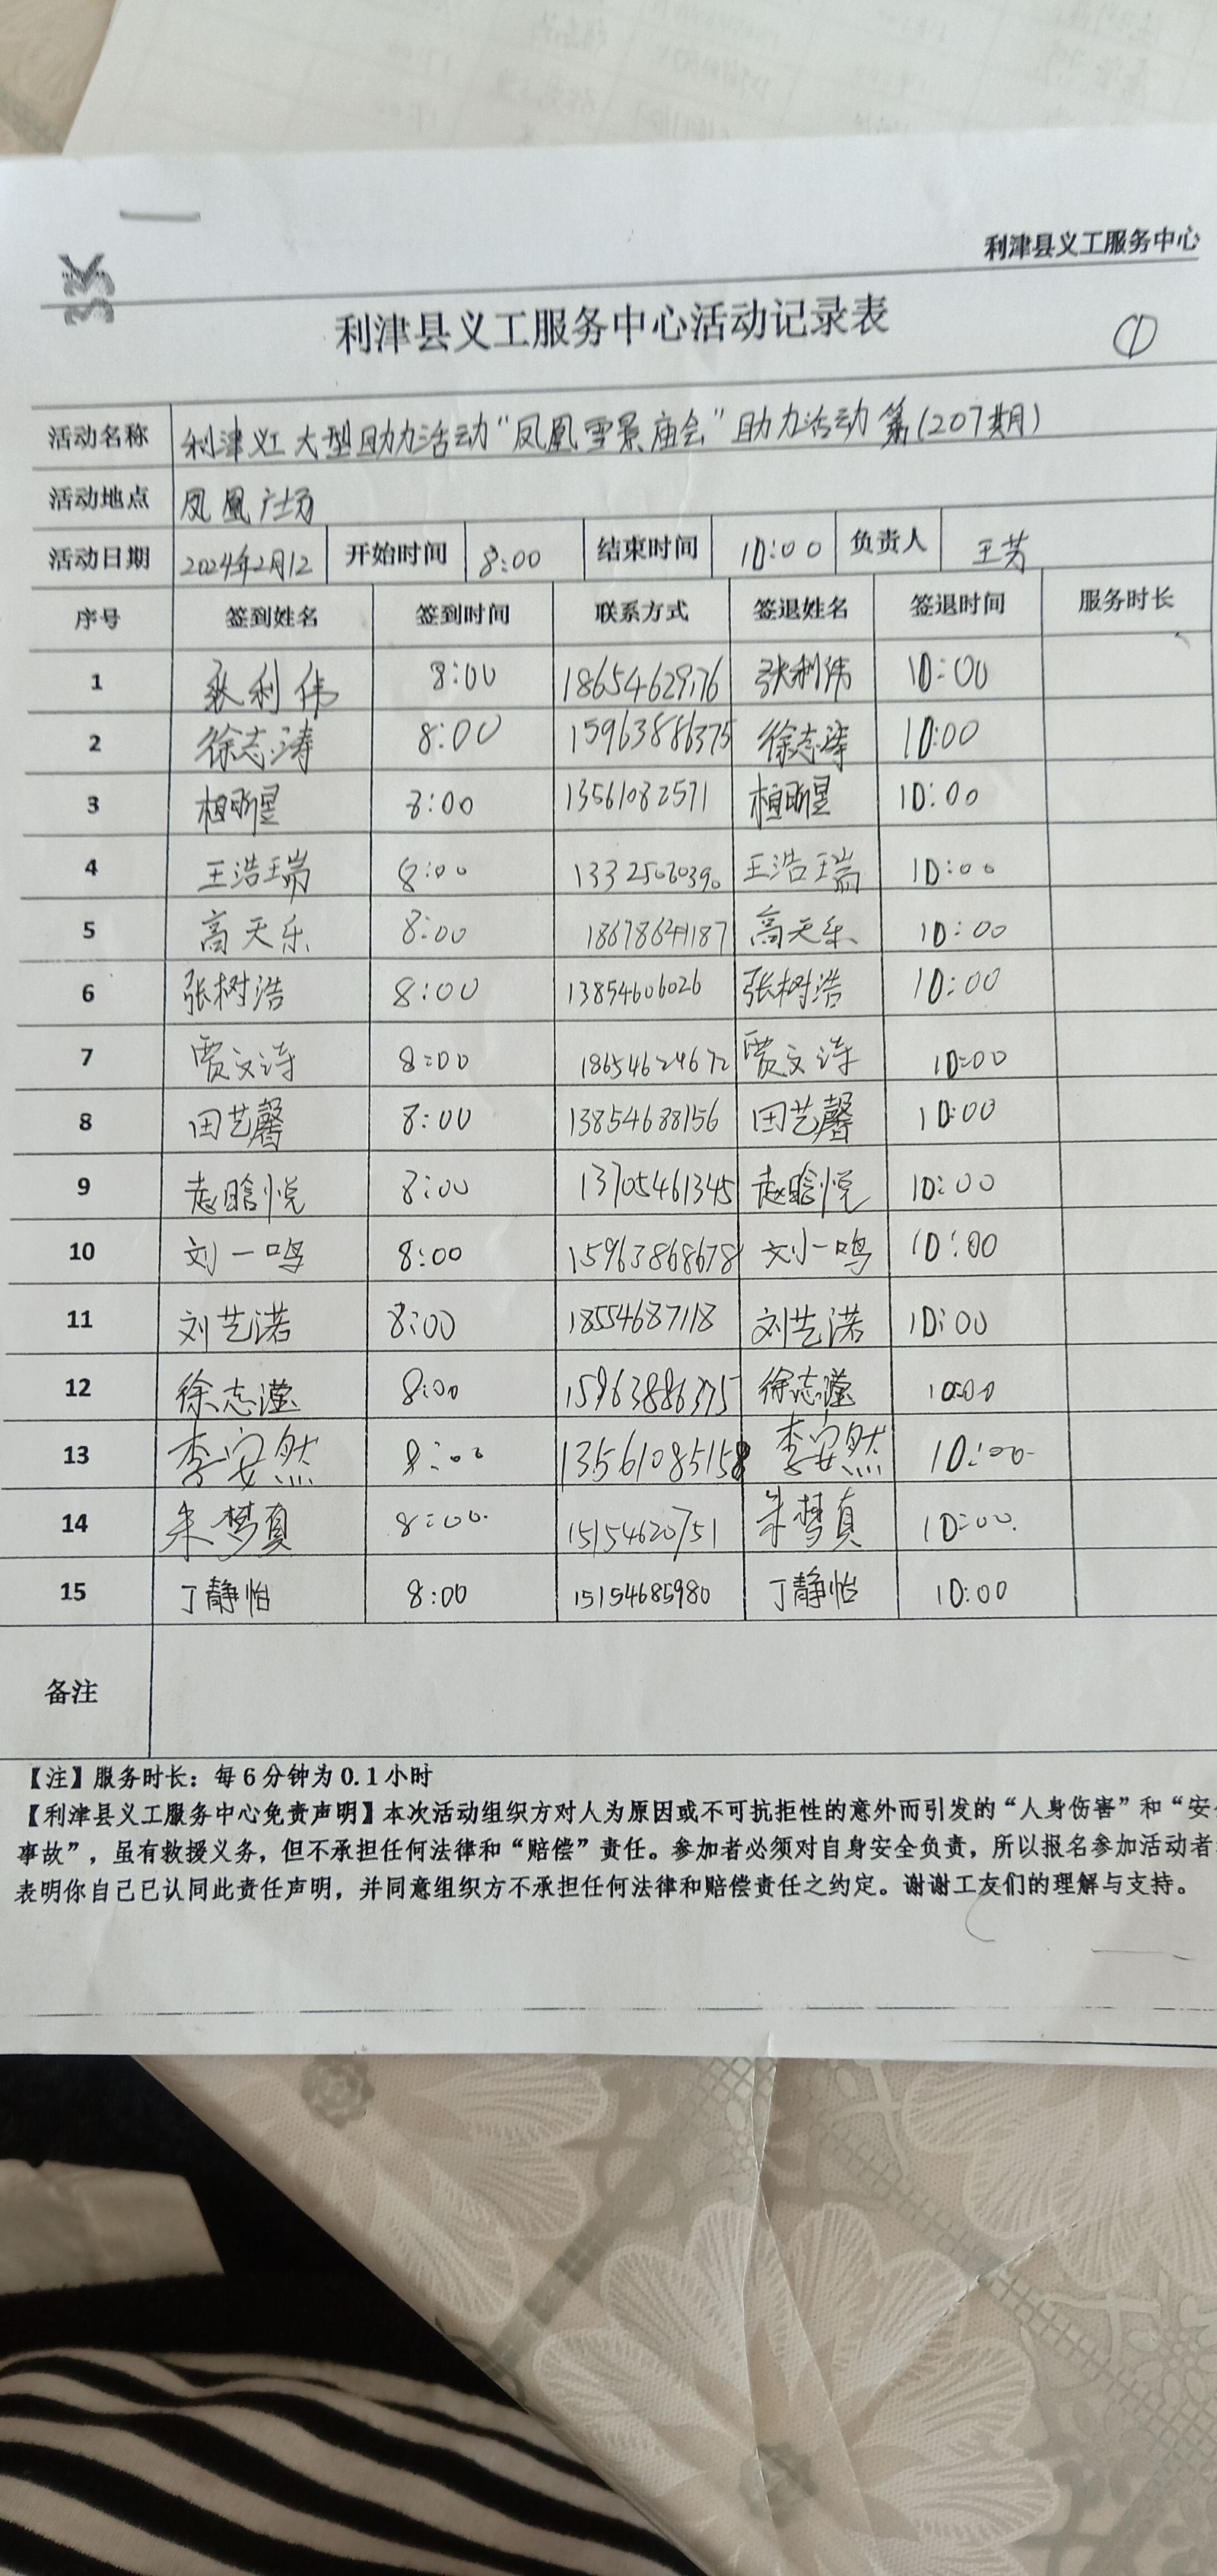 利津县义工服务中心
利津县义工服务中心活动记录表 ①
活动名称 利津义工大型助力活动“凤凰雪景庙会”助力活动第(207期)
活动地点 凤凰广场
活动日期 2024年2月12 开始时间 8:00 结束时间 10:00 负责人 王芳
序号 签到姓名 签到时间 联系方式 签退姓名 签退时间 服务时长
1 张利伟 8:00 18654629176 张利伟 10:00
2 徐志涛 8:00 15963886375 徐志涛 10:00
3 8:00 13561082571 10:00
4 王浩瑞 8:00 13325060390 王浩瑞 10:00
5 高天乐 8:00 18678641187 高天乐 10:00
6 张树浩 8:00 13854606026 张树浩 10:00
7 贾文涛 8:00 18654624672 贾文涛 10:00
8 田艺馨 8:00 13854688156 田艺馨 10:00
9 赵晗悦 8:00 13705461345 赵晗悦 10:00
10 刘一鸣 8:00 15963868678 刘一鸣 10:00
11 刘艺诺 8:00 18554687118 刘艺诺 10:00
12 徐志滢 8:00 15963886375 徐志滢 10:00
13 李安然 8:00 13561085158 李安然 10:00
14 朱梦真 8:00 15154620751 朱梦真 10:00
15 丁静怡 8:00 15154685980 丁静怡 10:00
备注
【注】服务时长：每6分钟为0.1小时
【利津县义工服务中心免责声明】本次活动组织方对人为原因或不可抗拒性的意外而引发的“人身伤害”和“安
事故”，虽有救援义务，但不承担任何法律和“赔偿”责任。参加者必须对自身安全负责，所以报名参加活动者
表明你自己已认同此责任声明，并同意组织方不承担任何法律和赔偿责任之约定。谢谢工友们的理解与支持。